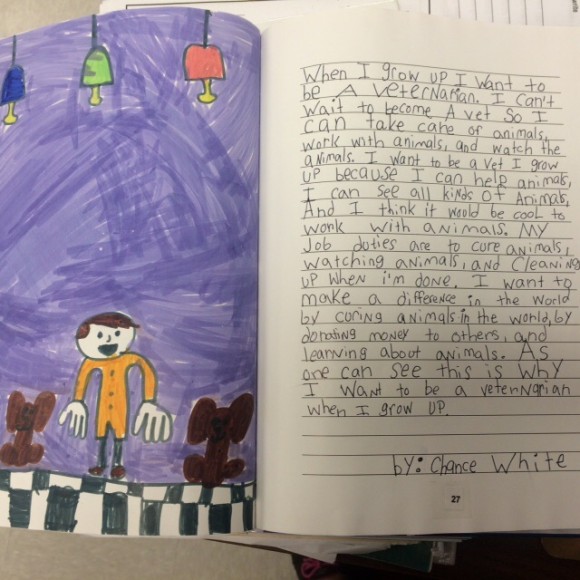 When I grow up I want to
be A veterNarian. I can't
wait to become A vet so I
can take care of animals,
work with animals, and watch the
animals. I want to be a vet I grow
up because I can help animals,
I can see all kinds of Animals,
And I think it would be cool to
work with animals. My
Job duties are to cure animals,
watching animals, and Cleaning
up when i'm done. I want to
make a difference in the world
by curing animals in the world, by
donating money to others, and
learning about animals. As
one can see this is why
I want to be a veterNarian
when I grow up.
by: Chance White
27